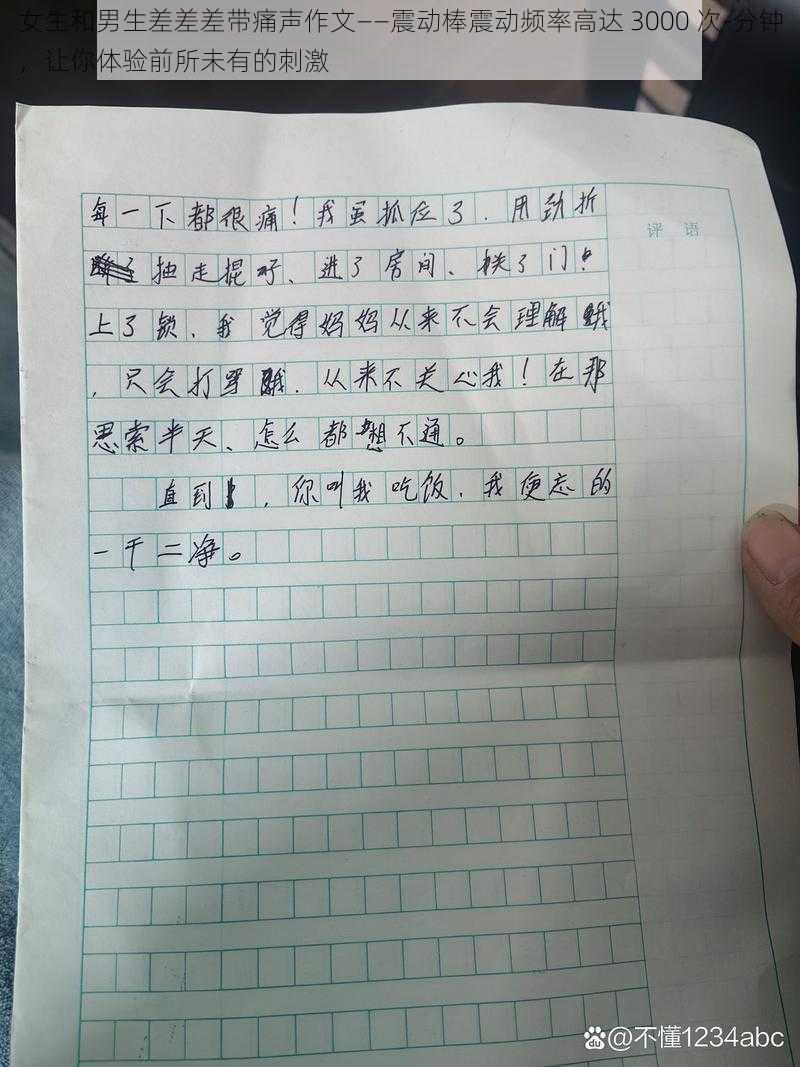 女生和男生差差差带痛声作文——震动棒震动频率高达 3000 次-分钟
，让你体验前所未有的刺激
评 语
每一下都很痛！我虽抓住了．用劲折
抽走棍子、进了房间、关了门！
上了锁、我觉得妈妈从来不会理解我
，只会打骂我．从来不关心我！在那
思索半天、怎么都想不通。
直到，你叫我吃饭．我便忘的
一干二净。
@不懂1234abc